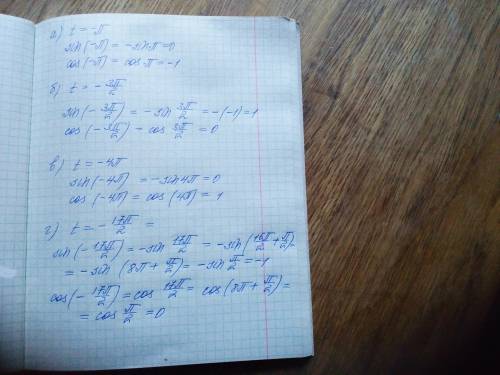 а) t = -π
sin(-π) = -sin π = 0
cos(-π) = cos π = -1
б) t = -3π/2
sin(-3π/2) = -sin 3π/2 = -(-1) = 1
cos(-3π/2) - cos 3π/2 = 0
в) t = -4π
sin(-4π) = -sin 4π = 0
cos(-4π) = cos(4π) = 1
г) t = -17π/2 =
sin(-17π/2) = -sin 17π/2 = -sin(16π/2 + π/2) =
= -sin(8π + π/2) = -sin π/2 = -1
cos(-17π/2) = cos 17π/2 = cos(8π + π/2) =
= cos π/2 = 0